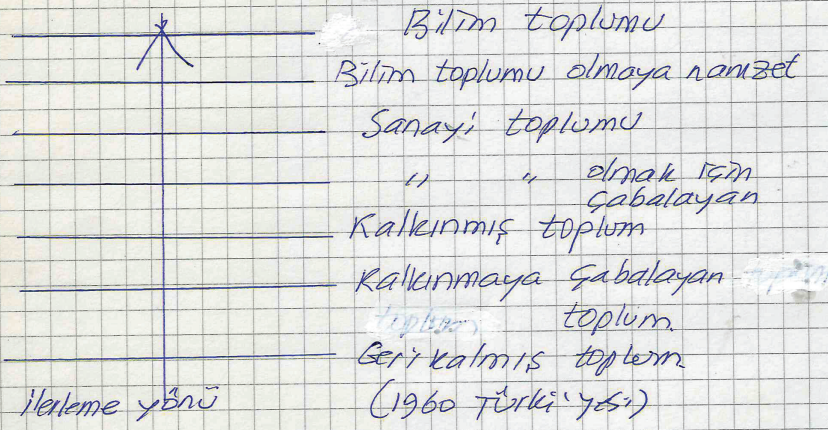 Bilim toplumu
Bilim toplumu olmaya namzet
Sanayi toplumu
" " olmak için
çabalayan
Kalkınmış toplum
Kalkınmaya çabalayan
toplum.
Geri kalmış toplum.
ilerleme yönü (1960 Türki'yesi)